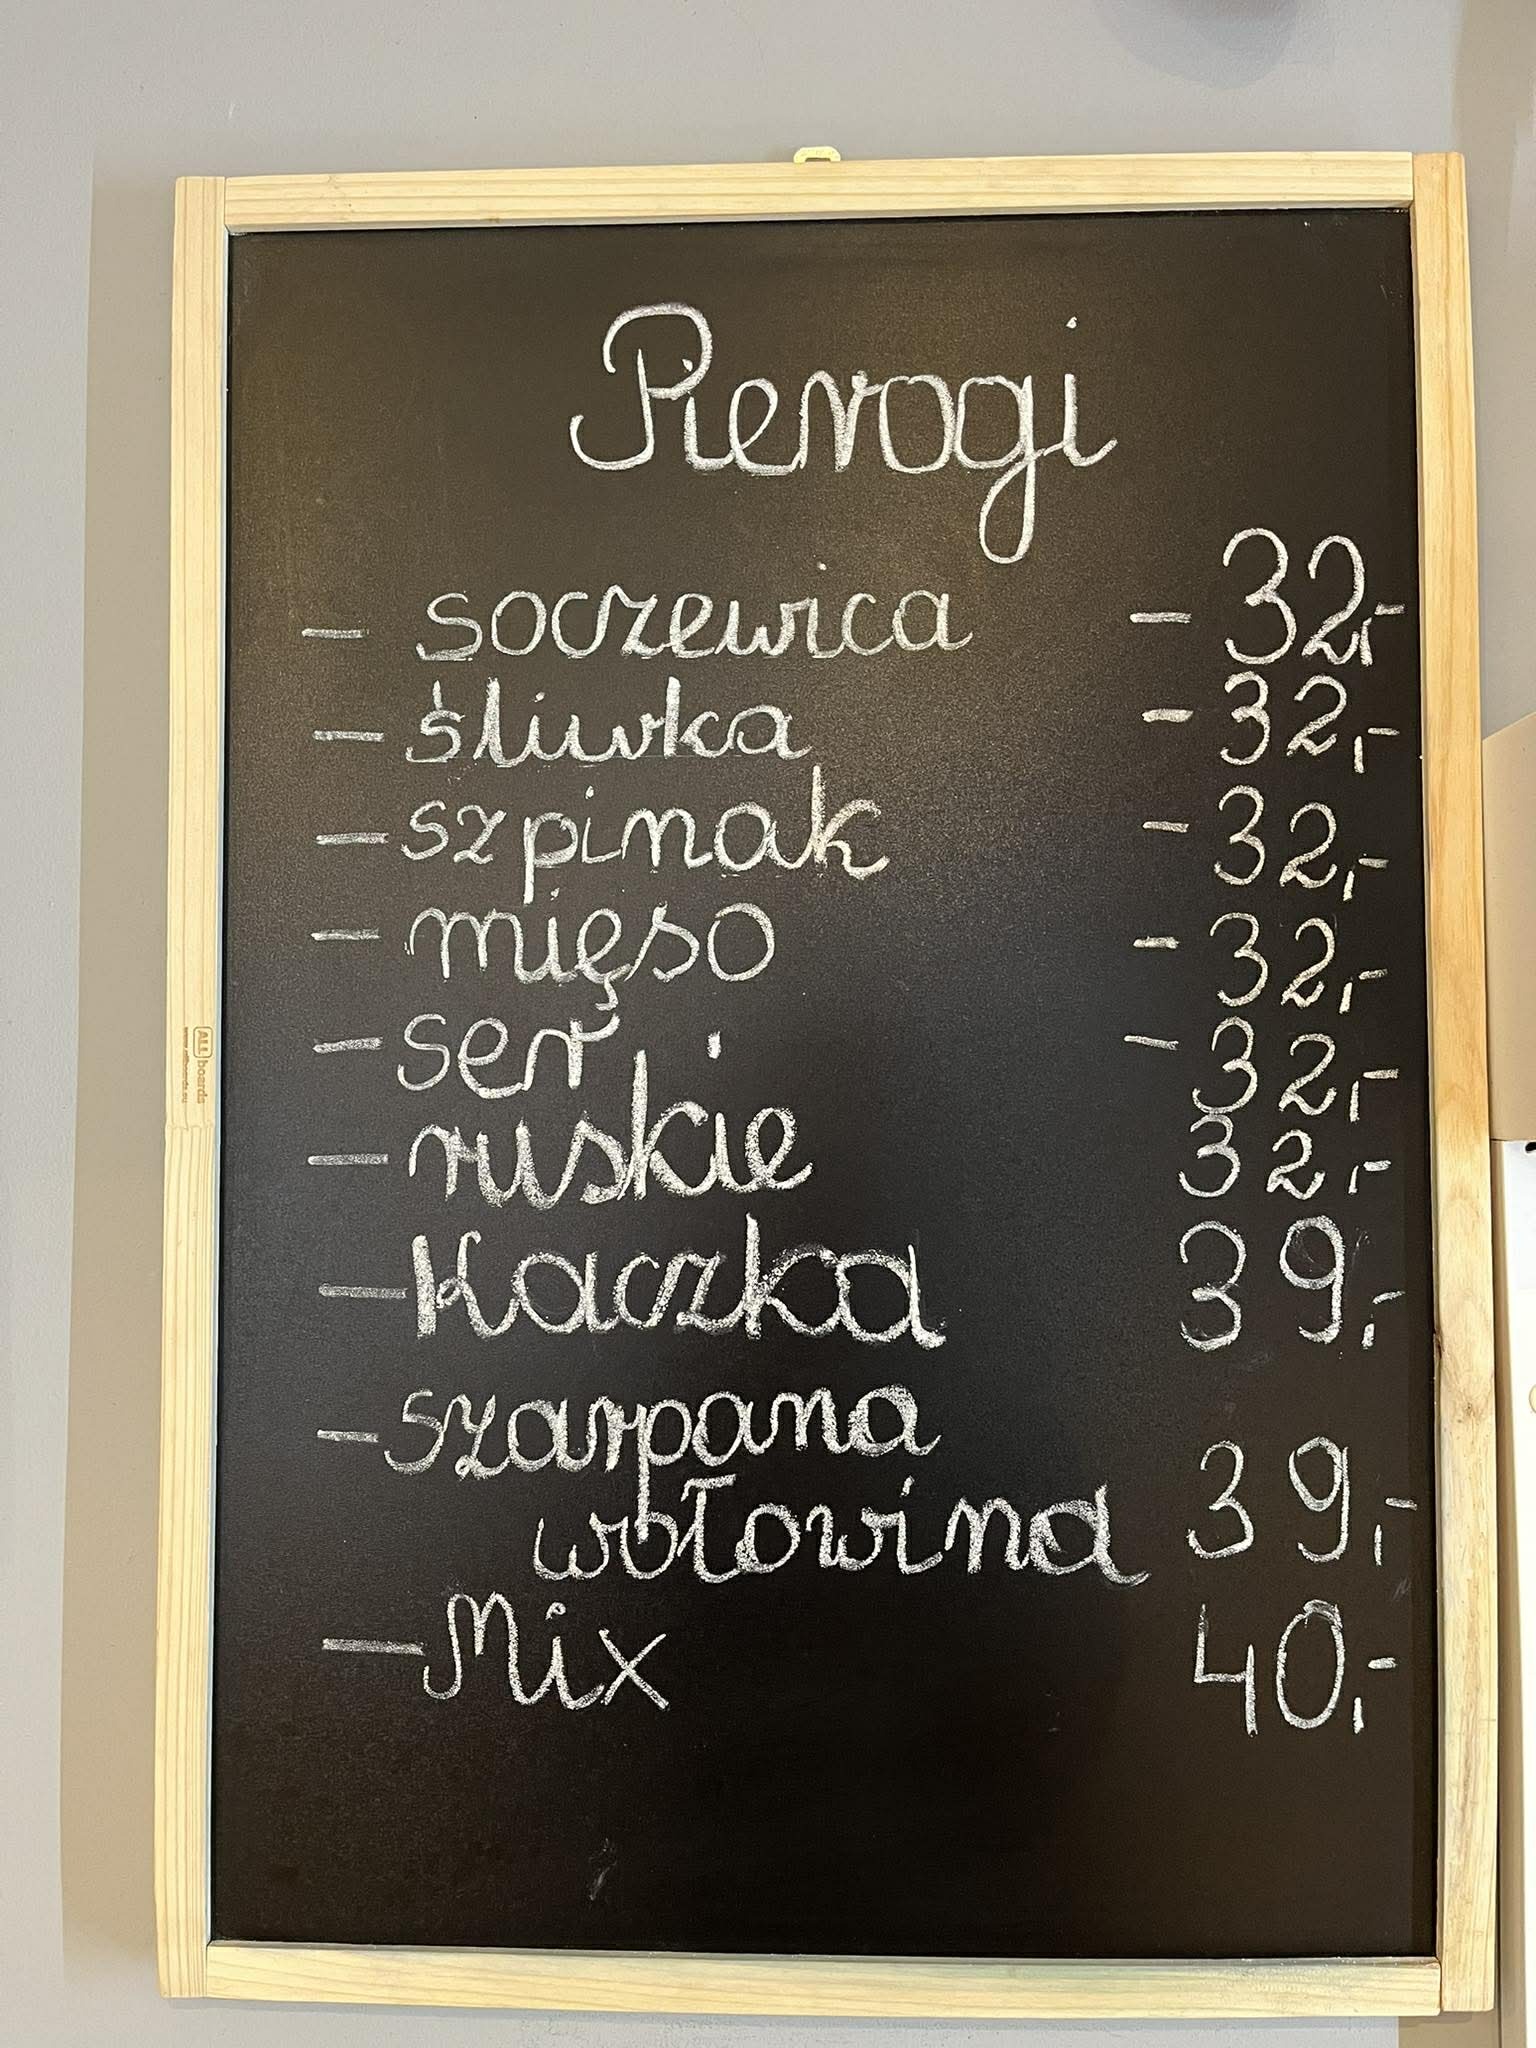 Pierogi
- soczewica - 32,-
- śliwka - 32,-
- szpinak - 32,-
- mięso - 32,-
- ser - 32,-
- ruskie 32,-
- Kaczka 39,-
- szarpana
wołowina 39,-
- Mix 40,-
ALLboards
www.allboards.eu